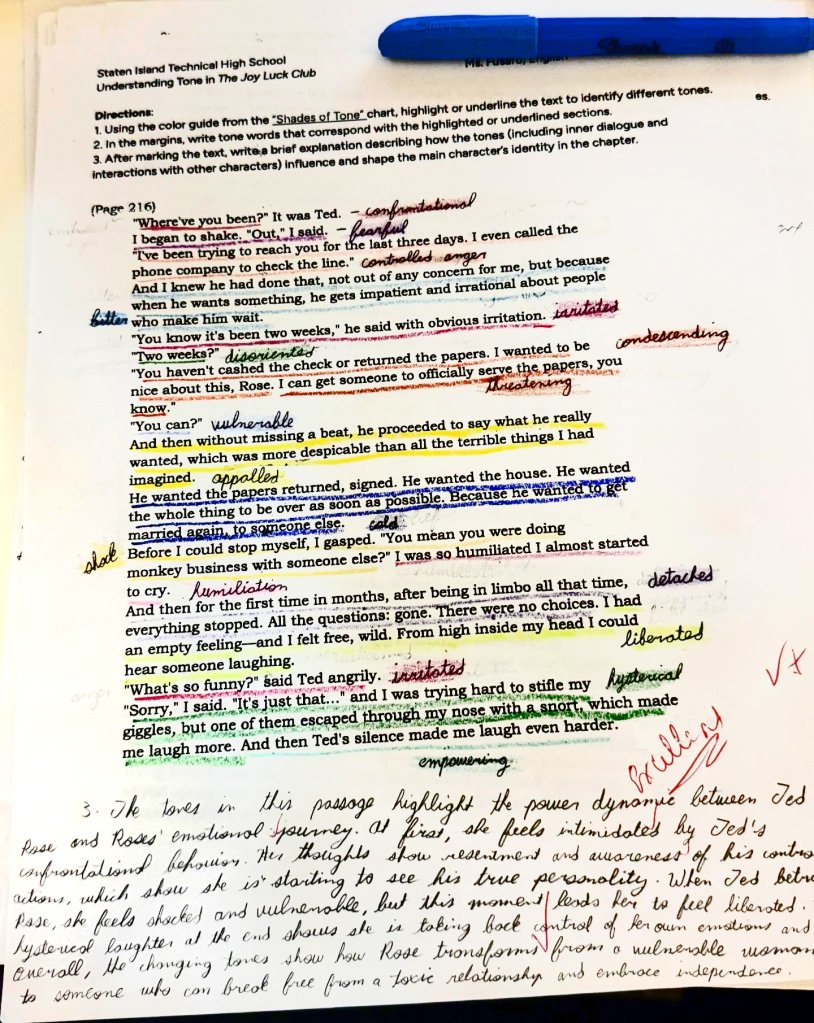 Staten Island Technical High School
Ms. Fusaro, English
Understanding Tone in The Joy Luck Club
Directions:
es.
1. Using the color guide from the "Shades of Tone" chart, highlight or underline the text to identify different tones.
2. In the margins, write tone words that correspond with the highlighted or underlined sections.
3. After marking the text, write a brief explanation describing how the tones (including inner dialogue and
interactions with other characters) influence and shape the main character's identity in the chapter.
(Page 216)
"Where've you been?" It was Ted. – confrontational
I began to shake. "Out," I said. – fearful
"I've been trying to reach you for the last three days. I even called the
phone company to check the line." controlled anger
And I knew he had done that, not out of any concern for me, but because
when he wants something, he gets impatient and irrational about people
bitter who make him wait.
"You know it's been two weeks," he said with obvious irritation. irritated
"Two weeks?" disoriented
"You haven't cashed the check or returned the papers. I wanted to be condescending
nice about this, Rose. I can get someone to officially serve the papers, you
know." threatening
"You can?" vulnerable
And then without missing a beat, he proceeded to say what he really
wanted, which was more despicable than all the terrible things I had
imagined. appalled
He wanted the papers returned, signed. He wanted the house. He wanted
the whole thing to be over as soon as possible. Because he wanted to get
married again, to someone else. cold
shock Before I could stop myself, I gasped. "You mean you were doing
monkey business with someone else?" I was so humiliated I almost started
to cry. humiliation
And then for the first time in months, after being in limbo all that time, detached
everything stopped. All the questions: gone. There were no choices. I had
an empty feeling—and I felt free, wild. From high inside my head I could liberated
hear someone laughing.
"What's so funny?" said Ted angrily. irritated
"Sorry," I said. "It's just that..." and I was trying hard to stifle my hysterical
giggles, but one of them escaped through my nose with a snort, which made
me laugh more. And then Ted's silence made me laugh even harder.
empowering
Excellent
3. The tones in this passage highlight the power dynamic between Ted
Rose and Roses' emotional journey. At first, she feels intimidated by Ted's
confrontational behavior. Her thoughts show resentment and awareness of his contro
actions, which show she is starting to see his true personality. When Ted betr
Rose, she feels shocked and vulnerable, but this moment leads her to feel liberated.
hysterical laughter at the end shows she is taking back control of her own emotions and
Overall, the changing tones show how Rose transforms from a vulnerable woman
to someone who can break free from a toxic relationship and embrace independence.